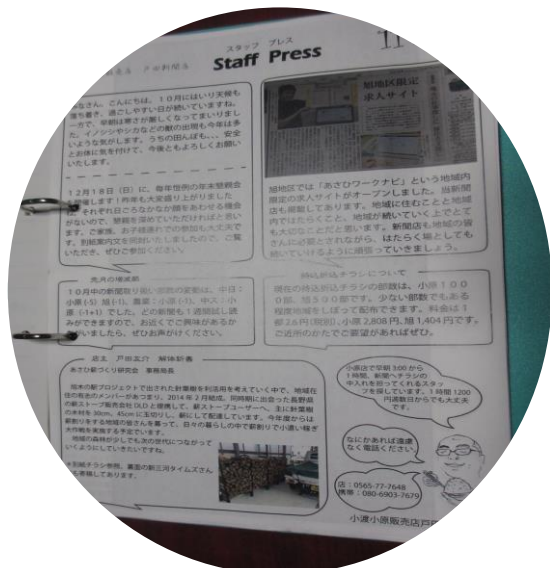 スタッフ プレス
売店 戸田新聞店
Staff Press
11
みなさん、こんにちは。10月にはいり天候も
落ち着き、過ごしやすい日が続いていますね。
一方で、早朝は寒さが厳しくなってまいりまし
た。イノシシやシカなどの獣の出現も今年は多
いような気がします。うちの田んぼも…。安全
とお体に気を付けて、今後ともよろしくお願い
いたします。
12月18日(日)に、毎年恒例の年末懇親会
開催します!昨年も大変盛り上がりました
それぞれ日ごろなかなか顔をあわせる機会
がないので、懇親を深めていただければと思い
ます。ご家族、お子様連れでの参加も大丈夫で
す。別紙案内文を同封いたしましたので、ご覧
いただき、ぜひご参加ください。
旭地区限定
求人サイト
旭地区では「あさひワークナビ」という地域内
限定の求人サイトがオープンしました。当新聞
店も掲載しております。地域に住むことと地域
内ではたらくこと。地域が続いていく上でとて
も大切なことだと思います。新聞店も地域の皆
さんに必要とされながら、はたらく場としても
続いていけるように頑張っていきましょう。
先月の増減部
10月中の新聞取り扱い部数の変動は、中日:
小原(-5) 旭(-1)、農業:小原(-1)、中ス:小
原(-1+1)でした。どの新聞も1週間試し読
みができますので、お近くでご興味があるか
いましたら、ぜひお声がけください。
持込折込チラシについて
現在の持込折込チラシの部数は、小原100
0部、旭590部です。少ない部数でもある
程度地域をしぼって配布できます。料金は1
部2.6円(税別)、小原2,808円、旭1,404円です。
ご近所のかたでご要望があればぜひ。
店主 戸田友介 解体新書
あさひ薪づくり研究会 事務局長
旭木の駅プロジェクトで出された針葉樹を利活用を考えていく中で、地域在
住の有志のメンバーがあつまり、2014年2月結成。同時期に出会った長野県
の薪ストーブ販売会社DLDと提携して、薪ストーブユーザーへ、主に針葉樹
の木材を30cm、45cmに玉切りし、薪にして配達しています。今年度からは
薪割りをする地域の皆さんを募って、日々の暮らしの中で薪割りで小遣い稼ぎ
大作戦を実施する予定です。
地域の森林が少しでも次の世代につながって
いくようにしていきたいですね。
*別紙チラシ参照。裏面の新三河タイムズさん
も寄稿しております。
小原店で早朝3:00から
1時間、新聞へチラシの
中入れを担ってくれるスタッ
フを探しています。1時間1200
円週数日からでも大丈夫
です。
なにかあれば遠慮
なく電話ください。
店:0565-77-7648
携帯:080-6903-7679
小渡小原販売店戸田